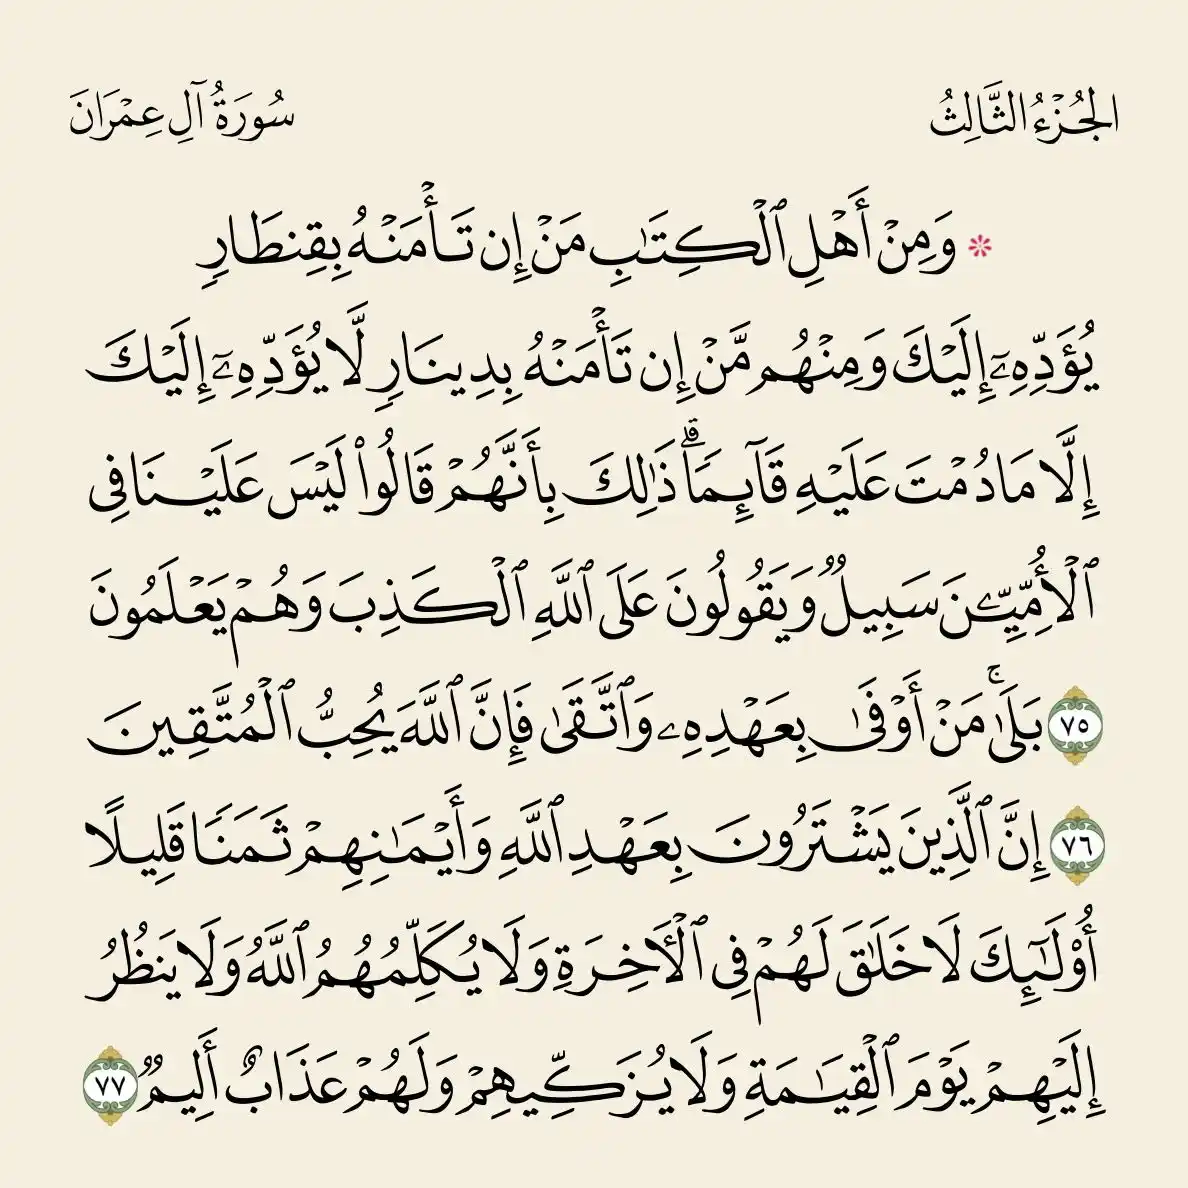 الجُزْءُ الثَّالِثُ
سُورَةُ آلِ عِمْرَانَ
۞ وَمِنْ أَهْلِ ٱلْكِتَٰبِ مَنْ إِن تَأْمَنْهُ بِقِنطَارٍ
يُؤَدِّهِۦٓ إِلَيْكَ وَمِنْهُم مَّنْ إِن تَأْمَنْهُ بِدِينَارٍ لَّا يُؤَدِّهِۦٓ إِلَيْكَ
إِلَّا مَا دُمْتَ عَلَيْهِ قَآئِمًا ۗ ذَٰلِكَ بِأَنَّهُمْ قَالُوا۟ لَيْسَ عَلَيْنَا فِى
ٱلْأُمِّيِّۦنَ سَبِيلٌ وَيَقُولُونَ عَلَى ٱللَّهِ ٱلْكَذِبَ وَهُمْ يَعْلَمُونَ
٧٥ بَلَىٰ ۚ مَنْ أَوْفَىٰ بِعَهْدِهِۦ وَٱتَّقَىٰ فَإِنَّ ٱللَّهَ يُحِبُّ ٱلْمُتَّقِينَ
٧٦ إِنَّ ٱلَّذِينَ يَشْتَرُونَ بِعَهْدِ ٱللَّهِ وَأَيْمَٰنِهِمْ ثَمَنًا قَلِيلًا
أُو۟لَٰٓئِكَ لَا خَلَٰقَ لَهُمْ فِى ٱلْأَخِرَةِ وَلَا يُكَلِّمُهُمُ ٱللَّهُ وَلَا يَنظُرُ
إِلَيْهِمْ يَوْمَ ٱلْقِيَٰمَةِ وَلَا يُزَكِّيهِمْ وَلَهُمْ عَذَابٌ أَلِيمٌ ٧٧